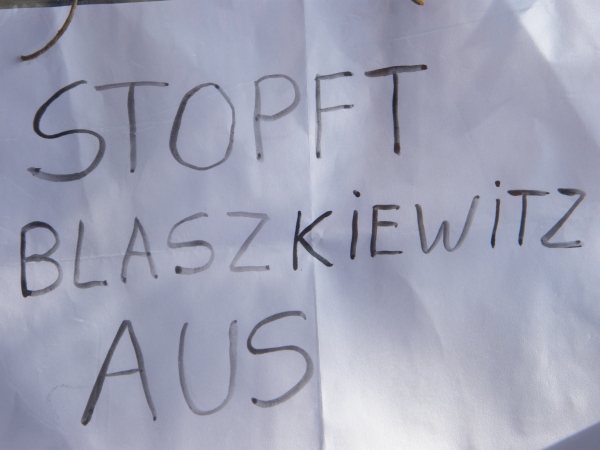 STOPFT
BLASZKiEWiTZ
AUS